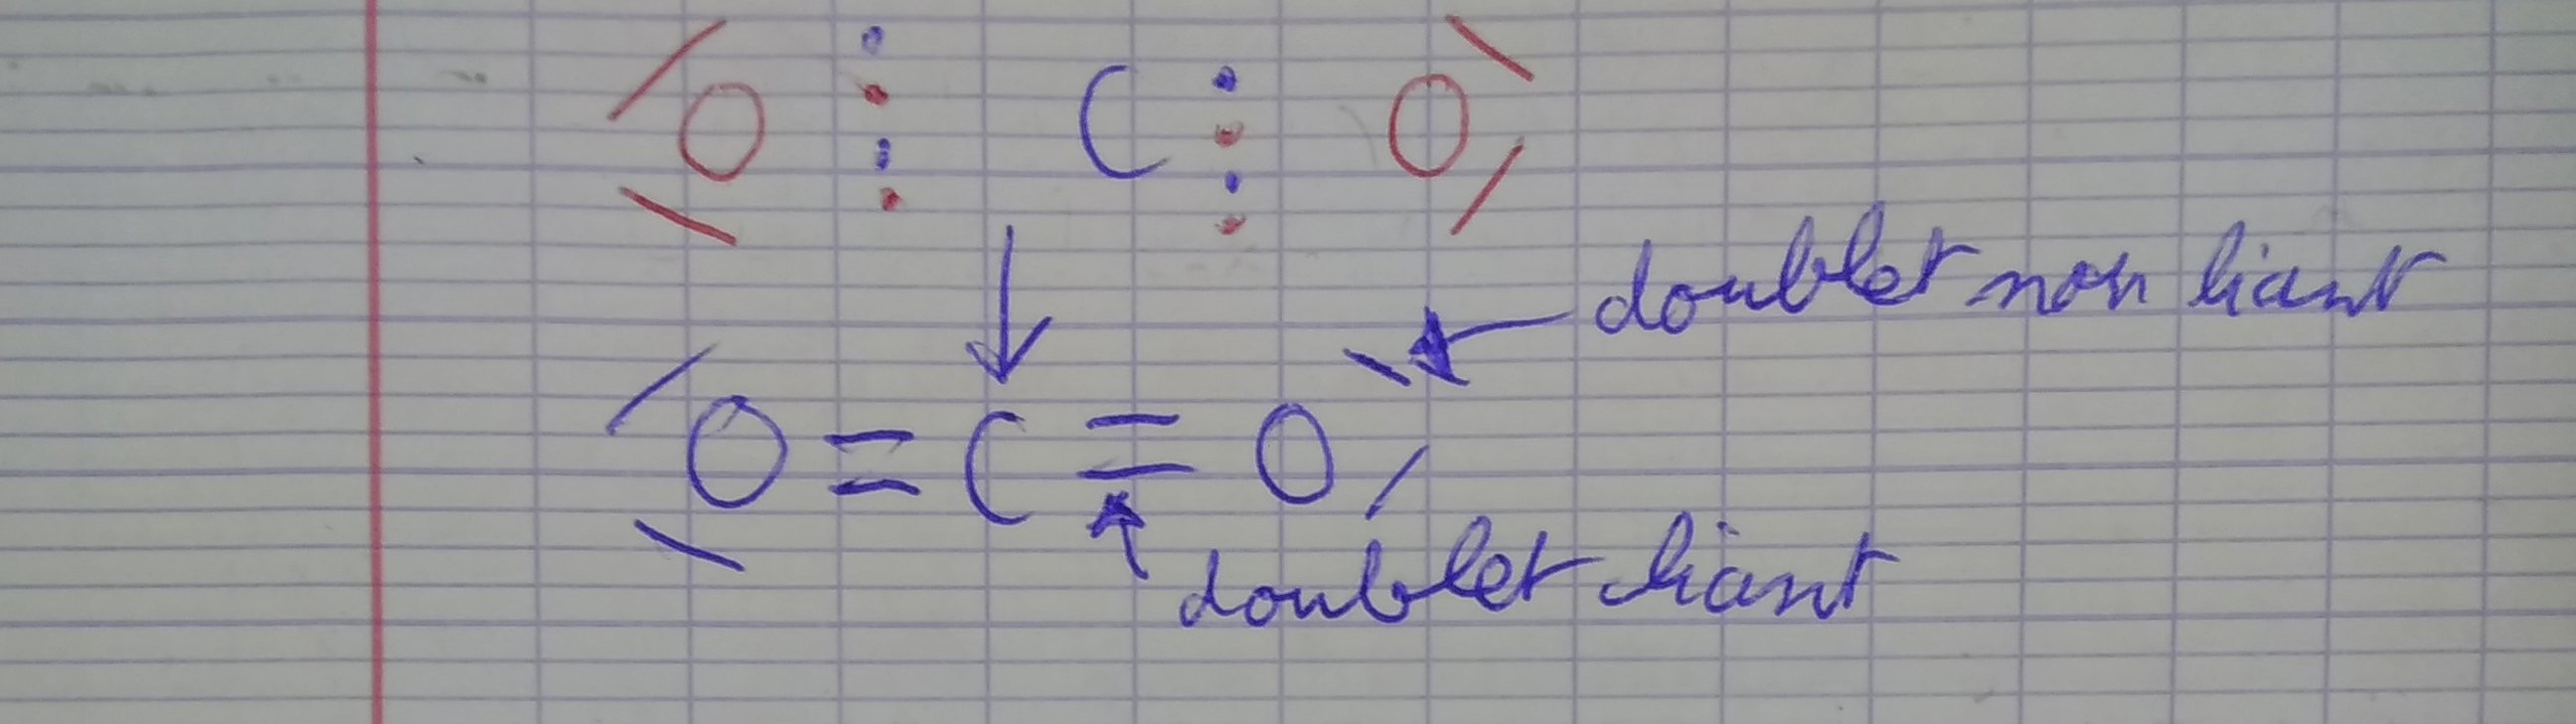 O : : C : : O
doublet non liant
O = C = O
doublet liant